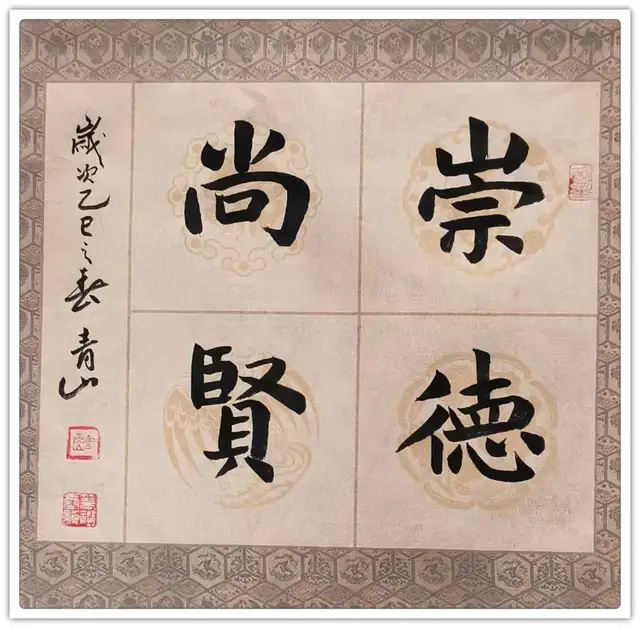 崇德
尚賢
歲次乙巳之春 青山